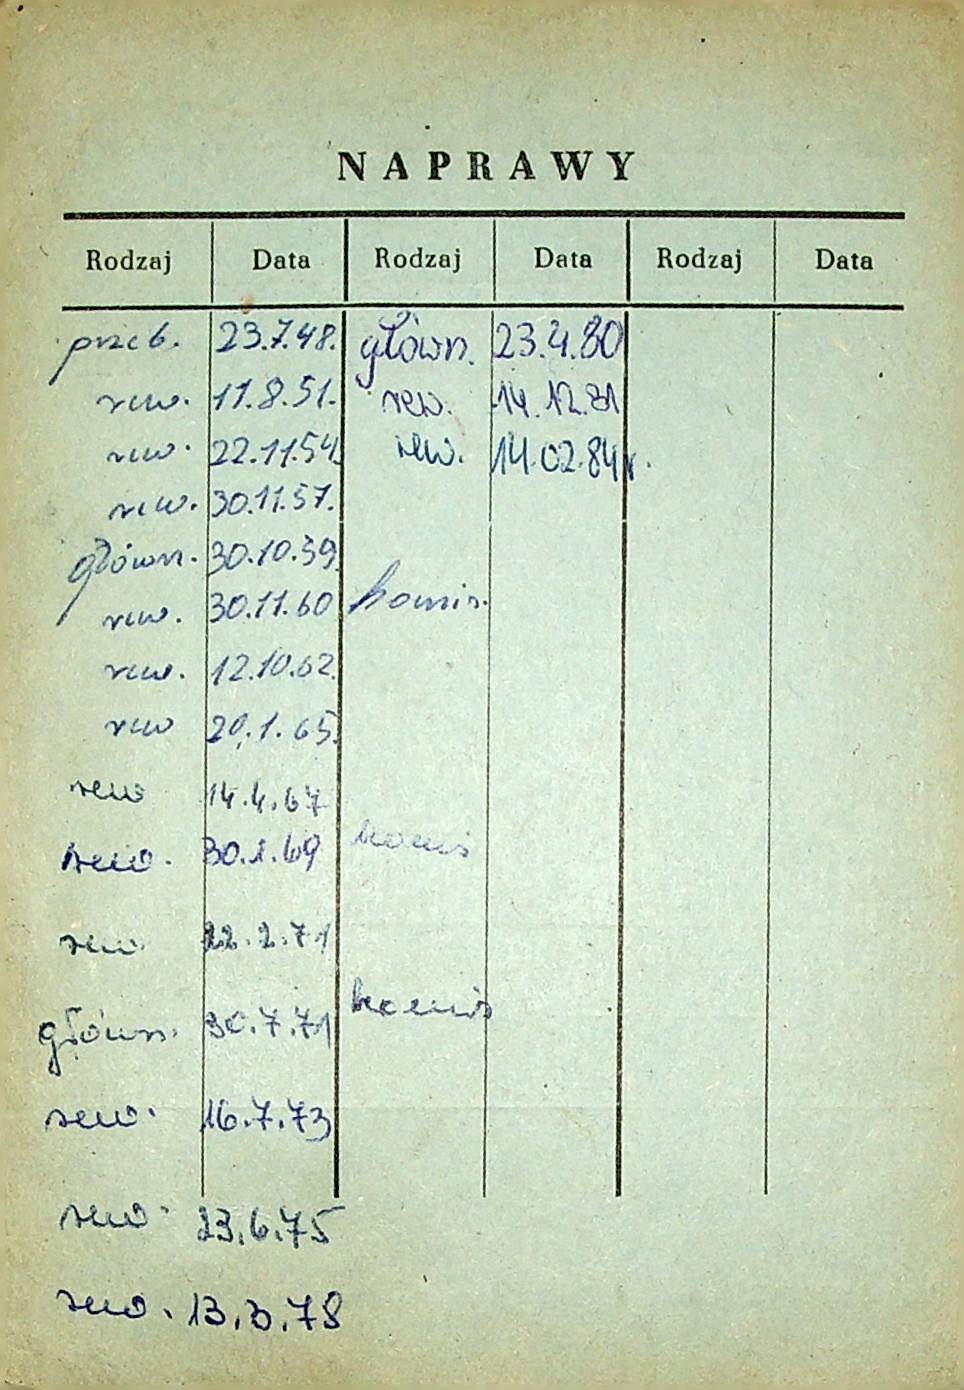 NAPRAWY
Rodzaj Data Rodzaj Data Rodzaj Data
przeb. 23.7.48. główn. 23.4.80
rew. 11.8.51. rew. 14.12.81
rew. 22.11.54. rew. 14.02.84r.
rew. 30.11.57.
główn. 30.10.59.
rew. 30.11.60 komis.
rew. 12.10.62.
rew 20.1.65.
rew 14.4.67
rew. 30.1.69 komis
rew 22.2.71
główn. 30.7.71 komis
rew. 16.7.73
rew. 23.6.75
rew. 13.3.78